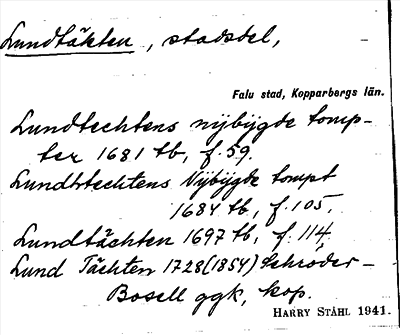 Lundtäkten, stadsdel,
Falu stad, Kopparbergs län.
Lundtechtens nÿbÿgde tomp-
ter 1681 tb, f. 59.
Lundhtechtens Nÿbÿgde tompt
1684 tb, f. 105.
Lundtächten 1697 tb, f. 114,
Lund Tächten 1728 (1854) Schröder-
Bosell ggk, kop.
HARRY STÅHL 1941.